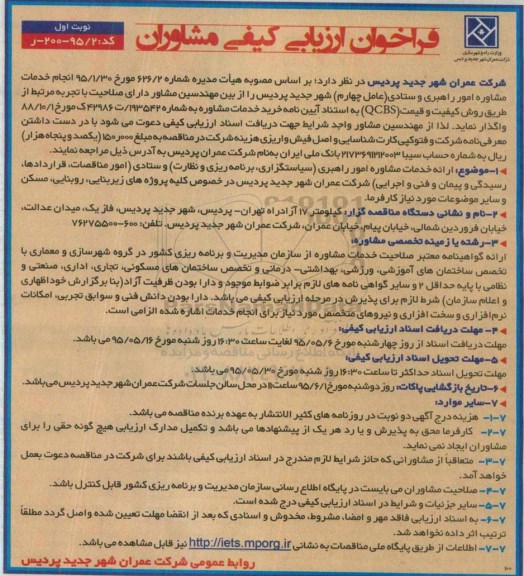 نوبت اول
کد: ۹۵/۲-۲۰۰-ر
فراخوان ارزیابی کیفی مشاوران
وزارت راه و شهرسازی
شرکت عمران شهر جدید پردیس
شرکت عمران شهر جدید پردیس در نظر دارد؛ بر اساس مصوبه هیأت مدیره شماره ۶۲۶/۲ مورخ ۹۵/۱/۳۰ انجام خدمات
مشاوره امور راهبری و ستادی(عامل چهارم) شهر جدید پردیس را از بین مهندسین مشاور دارای صلاحیت با تجربه مرتبط از
طریق روش کیفیت و قیمت(QCBS) به استناد آیین نامه خرید خدمات مشاوره به شماره ۱۹۳۵۴۲/ت ۴۲۹۸۶ک مورخ ۸۸/۱۰/۱
واگذار نماید. لذا از مهندسین مشاور واجد شرایط جهت دریافت اسناد ارزیابی کیفی دعوت می شود با در دست داشتن
معرفی نامه شرکت و فتوکپی کارت شناسایی و اصل فیش واریزی هزینه شرکت در مناقصه به مبلغ ۱۵۰،۰۰۰ (یکصد و پنجاه هزار)
ریال به شماره حساب سیبا ۲۱۷۳۶۹۱۲۱۲۰۰۳ بانک ملی ایران به نام شرکت عمران پردیس به آدرس ذیل مراجعه نمایند.
۱-موضوع: ارائه خدمات مشاوره امور راهبری (سیاستگزاری، برنامه ریزی و نظارت) و ستادی (امور مناقصات، قراردادها،
رسیدگی و پیمان و فنی و اجرایی) شرکت عمران شهر جدید پردیس در خصوص کلیه پروژه های زیربنایی، روبنایی، مسکن
و سایر موضوعات مورد نیاز کارفرما.
۲-نام و نشانی دستگاه مناقصه گزار: کیلومتر ۱۷ آزادراه تهران- پردیس، شهر جدید پردیس، فاز یک، میدان عدالت،
خیابان فروردین شمالی، خیابان پیام، خیابان عمران، شرکت عمران شهر جدید پردیس. تلفن: ۶۰۰-۷۶۲۷۵۵۰۰
۳-رشته یا زمینه تخصصی مشاوره:
ارائه گواهینامه معتبر صلاحیت خدمات مشاوره از سازمان مدیریت و برنامه ریزی کشور در گروه شهرسازی و معماری با
تخصص ساختمان های آموزشی، ورزشی، بهداشتی- درمانی و تخصص ساختمان های مسکونی، تجاری، اداری، صنعتی و
نظامی با پایه حداقل ۲ و سایر گواهی نامه های لازم برابر ضوابط موجود و دارا بودن ظرفیت آزاد(بنا برگزارش خوداظهاری
و اعلام سازمان) شرط لازم برای پذیرش در مرحله ارزیابی کیفی می باشد. دارا بودن دانش فنی و سوابق تجربی، امکانات
نرم افزاری و سخت افزاری و نیروهای متخصص مورد نیاز برای انجام خدمات اشاره شده الزامی است.
۴- مهلت دریافت اسناد ارزیابی کیفی:
مهلت دریافت اسناد از روز چهارشنبه مورخ ۹۵/۰۵/۶ لغایت ساعت ۱۶:۳۰ روز شنبه مورخ ۹۵/۰۵/۱۶ می باشد.
۵-مهلت تحویل اسناد ارزیابی کیفی:
مهلت تحویل اسناد حداکثر تا ساعت ۱۶:۳۰ روز شنبه مورخ ۹۵/۰۵/۳۰ می باشد.
۶-تاریخ بازگشایی پاکات: روز دوشنبه مورخ ۹۵/۶/۱ ساعت ۸ در محل سالن جلسات شرکت عمران شهر جدید پردیس می باشد.
۷-سایر موارد:
۷-۱- هزینه درج آگهی دو نوبت در روزنامه های کثیر الانتشار به عهده برنده مناقصه می باشد.
۷-۲- کارفرما محق به پذیرش و یا رد هر یک از پیشنهادها می باشد و تکمیل مدارک ارزیابی هیچ گونه حقی را برای
مشاوران ایجاد نمی نماید.
۷-۳- متعاقبا از مشاورانی که حائز شرایط لازم مندرج در اسناد ارزیابی کیفی باشند برای شرکت در مناقصه دعوت بعمل
خواهد آمد.
۷-۴- صلاحیت مشاوران می بایست در پایگاه اطلاع رسانی سازمان مدیریت و برنامه ریزی کشور قابل کنترل باشد.
۷-۵- سایر جزئیات و شرایط در اسناد ارزیابی کیفی درج شده است.
۷-۶- به اسناد ارزیابی فاقد مهر و امضا، مشروط، مخدوش و اسنادی که بعد از انقضا مهلت تعیین شده واصل گردد مطلقاً
ترتیب اثر داده نخواهد شد.
۷-۷- اطلاعات از طریق پایگاه ملی مناقصات به نشانی http://iets.mporg.ir نیز قابل مشاهده می باشد.
روابط عمومی شرکت عمران شهر جدید پردیس